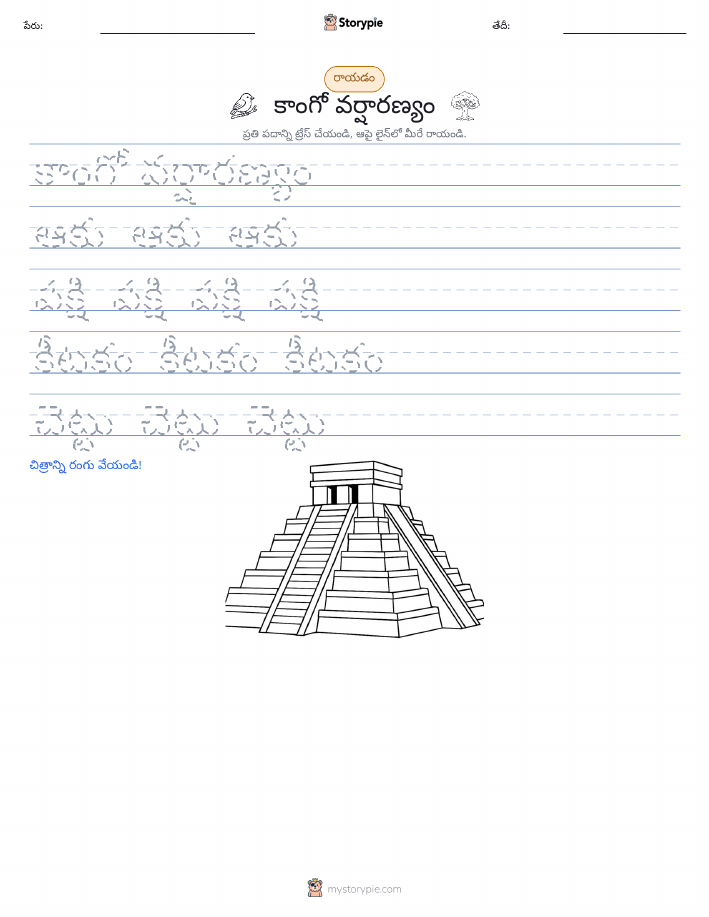 పేరు:
Storypie
తేదీ:
రాయడం
కాంగో వర్షారణ్యం
ప్రతి పదాన్ని ట్రేస్ చేయండి, ఆపై లైన్‌లో మీరే రాయండి.
కాంగో వర్షారణ్యం
ఆకు ఆకు ఆకు
పక్షి పక్షి పక్షి పక్షి
కీటకం కీటకం కీటకం
చెట్టు చెట్టు చెట్టు
చిత్రాన్ని రంగు వేయండి!
mystorypie.com